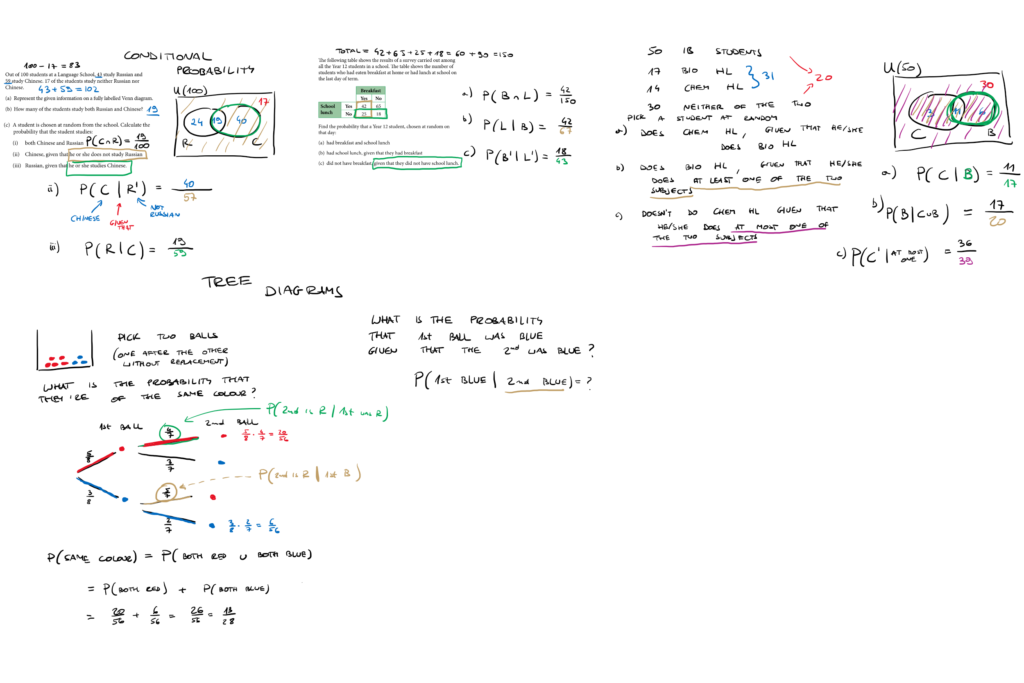 CONDITIONAL
PROBABILITY
100 - 17 = 83
Out of 100 students at a Language School, 43 study Russian and
59 study Chinese. 17 of the students study neither Russian nor
Chinese.
43 + 59 = 102
(a) Represent the given information on a fully labelled Venn diagram.
(b) How many of the students study both Russian and Chinese? 19
(c) A student is chosen at random from the school. Calculate the
probability that the student studies:
(i) both Chinese and Russian P(C∩R) = 19/100
(ii) Chinese, given that he or she does not study Russian
(iii) Russian, given that he or she studies Chinese.
U(100)
17
24 19 40
R C
ii) P(C | R') = 40/57
CHINESE
GIVEN
THAT
NOT
RUSSIAN
iii) P(R | C) = 19/59
TOTAL = 42 + 65 + 25 + 18 = 60 + 90 = 150
The following table shows the results of a survey carried out among
all the Year 12 students in a school. The table shows the number of
students who had eaten breakfast at home or had lunch at school on
the last day of term.
Breakfast
Yes No
School Yes 42 65
lunch No 25 18
Find the probability that a Year 12 student, chosen at random on
that day:
(a) had breakfast and school lunch
(b) had school lunch, given that they had breakfast
(c) did not have breakfast, given that they did not have school lunch.
a) P(B∩L) = 42/150
b) P(L | B) = 42/67
c) P(B' | L') = 18/43
50 IB STUDENTS
17 BIO HL
14 CHEM HL
31
20
30 NEITHER OF THE TWO
PICK A STUDENT AT RANDOM
a) DOES CHEM HL, GIVEN THAT HE/SHE
DOES BIO HL
b) DOES BIO HL, GIVEN THAT HE/SHE
DOES AT LEAST ONE OF THE TWO
SUBJECTS
c) DOESN'T DO CHEM HL GIVEN THAT
HE/SHE DOES AT MOST ONE OF
THE TWO SUBJECTS
U(50)
30
3 11 6
C B
a) P(C | B) = 11/17
b) P(B | C∪B) = 17/20
c) P(C' | AT MOST ONE) = 36/39
TREE
DIAGRAMS
PICK TWO BALLS
(ONE AFTER THE OTHER
WITHOUT REPLACEMENT)
WHAT IS THE PROBABILITY THAT
THEY'RE OF THE SAME COLOUR?
1st BALL 2nd BALL
P(2nd is R | 1st was R)
5/8 4/7 5/8 · 4/7 = 20/56
3/7
P(2nd is R | 1st B)
3/8 5/7
2/7 3/8 · 2/7 = 6/56
P(SAME COLOUR) = P(BOTH RED ∪ BOTH BLUE)
= P(BOTH RED) + P(BOTH BLUE)
= 20/56 + 6/56 = 26/56 = 13/28
WHAT IS THE PROBABILITY
THAT 1st BALL WAS BLUE
GIVEN THAT THE 2nd WAS BLUE?
P(1st BLUE | 2nd BLUE) = ?